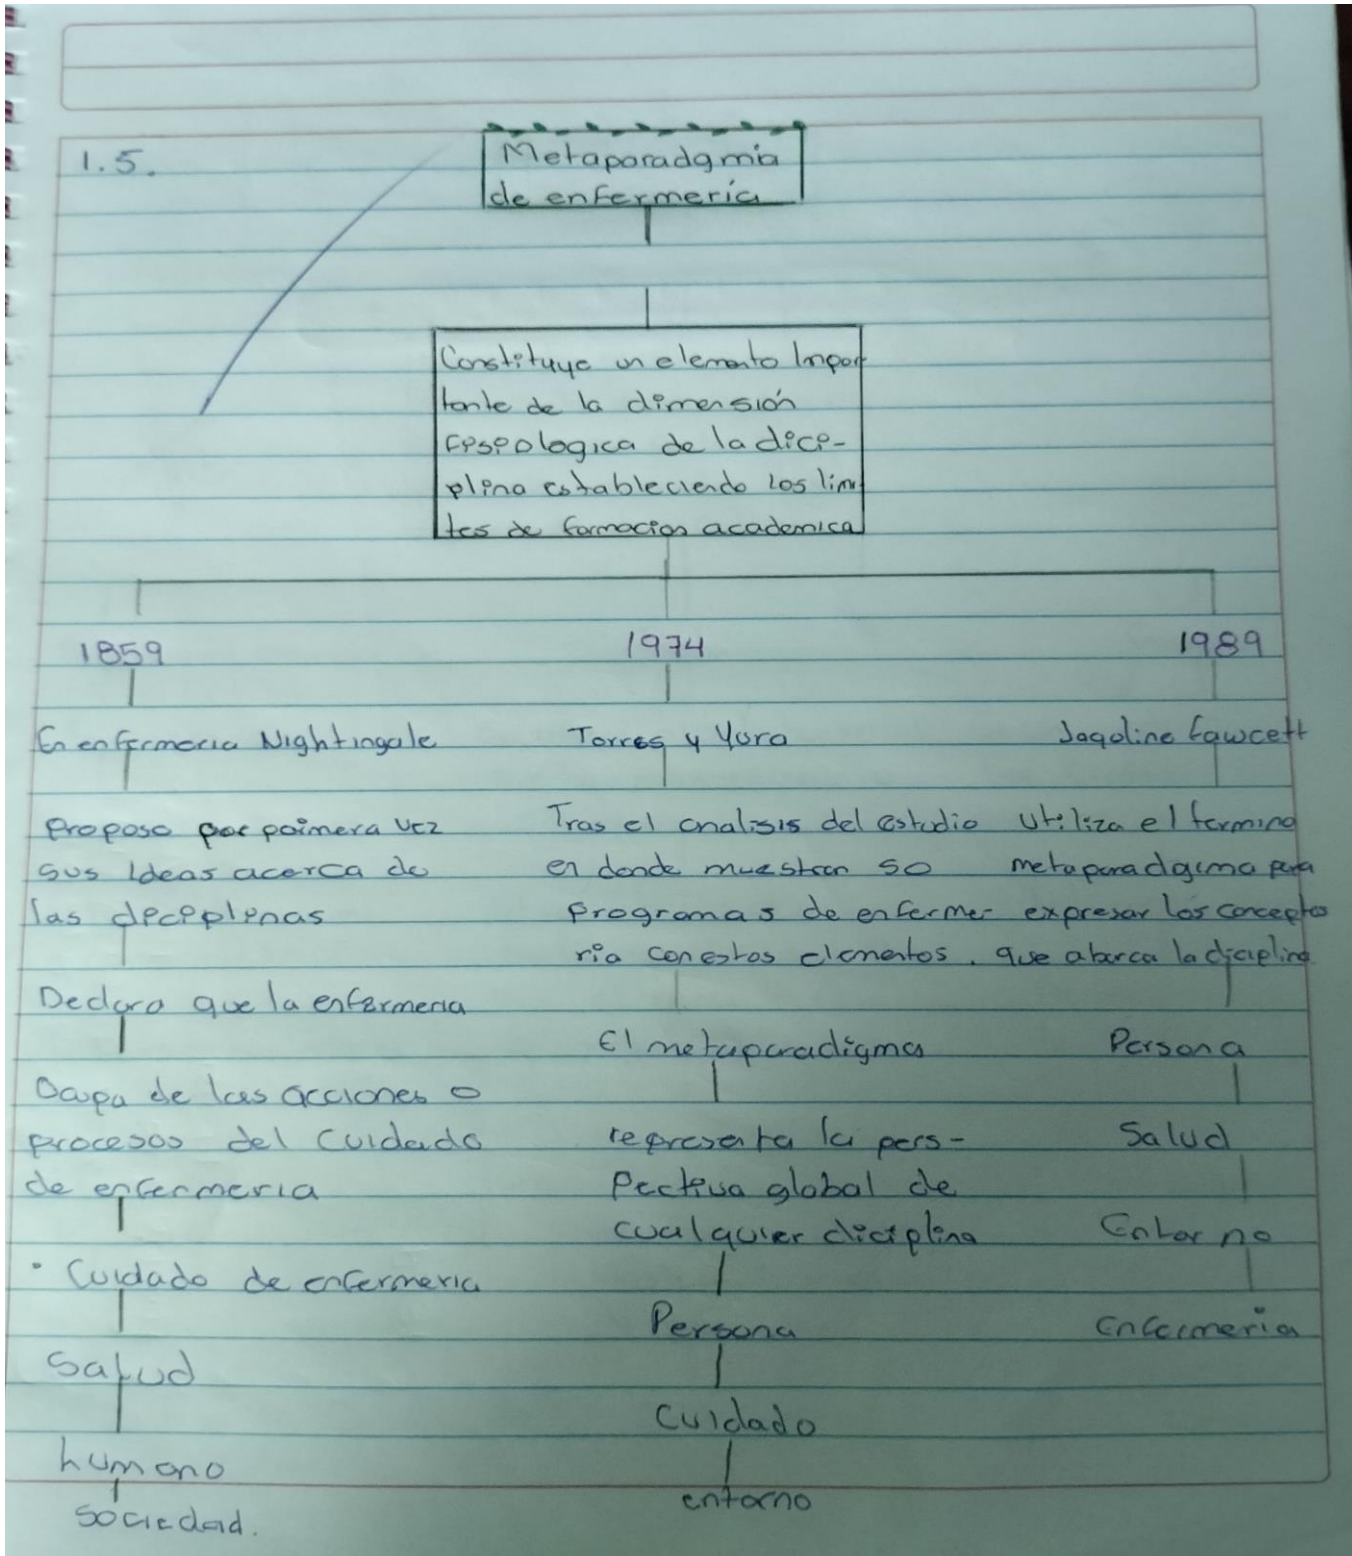 1.5.
Metaparadgmia
de enfermería
Constituye un elemento Impor
tante de la dimensión
de la dici-
plina estableciendo los limi
tes de formacion academica
1859
En enfermeria Nightingale
Proposo por poimera vez
sus Ideas acerca de
las diciplinas
Declara que la enfermeria
Ocupa de las acciones o
procesos del cuidado
de enfermeria
• Cuidado de enfermeria
Salud
humano
sociedad.
1974
Torres y Yura
Tras el analisis del estudio
en donde muestran 50
Programas de enferme-
ria con estos elementos.
El metaparadigma
representa la pers-
Pectiva global de
cualquier diciplina
Persona
Cuidado
entorno
1989
Jaqoline Fawcett
Utiliza el termino
metaparadgima para
expresar los conceptos
que abarca la diciplina
Persona
Salud
Entorno
Enfermeria